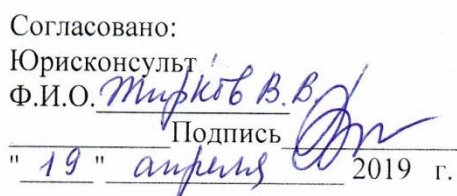 Согласовано:
Юрисконсульт
Ф.И.О. Жирков В.В.
Подпись
" 19 " апреля 2019 г.